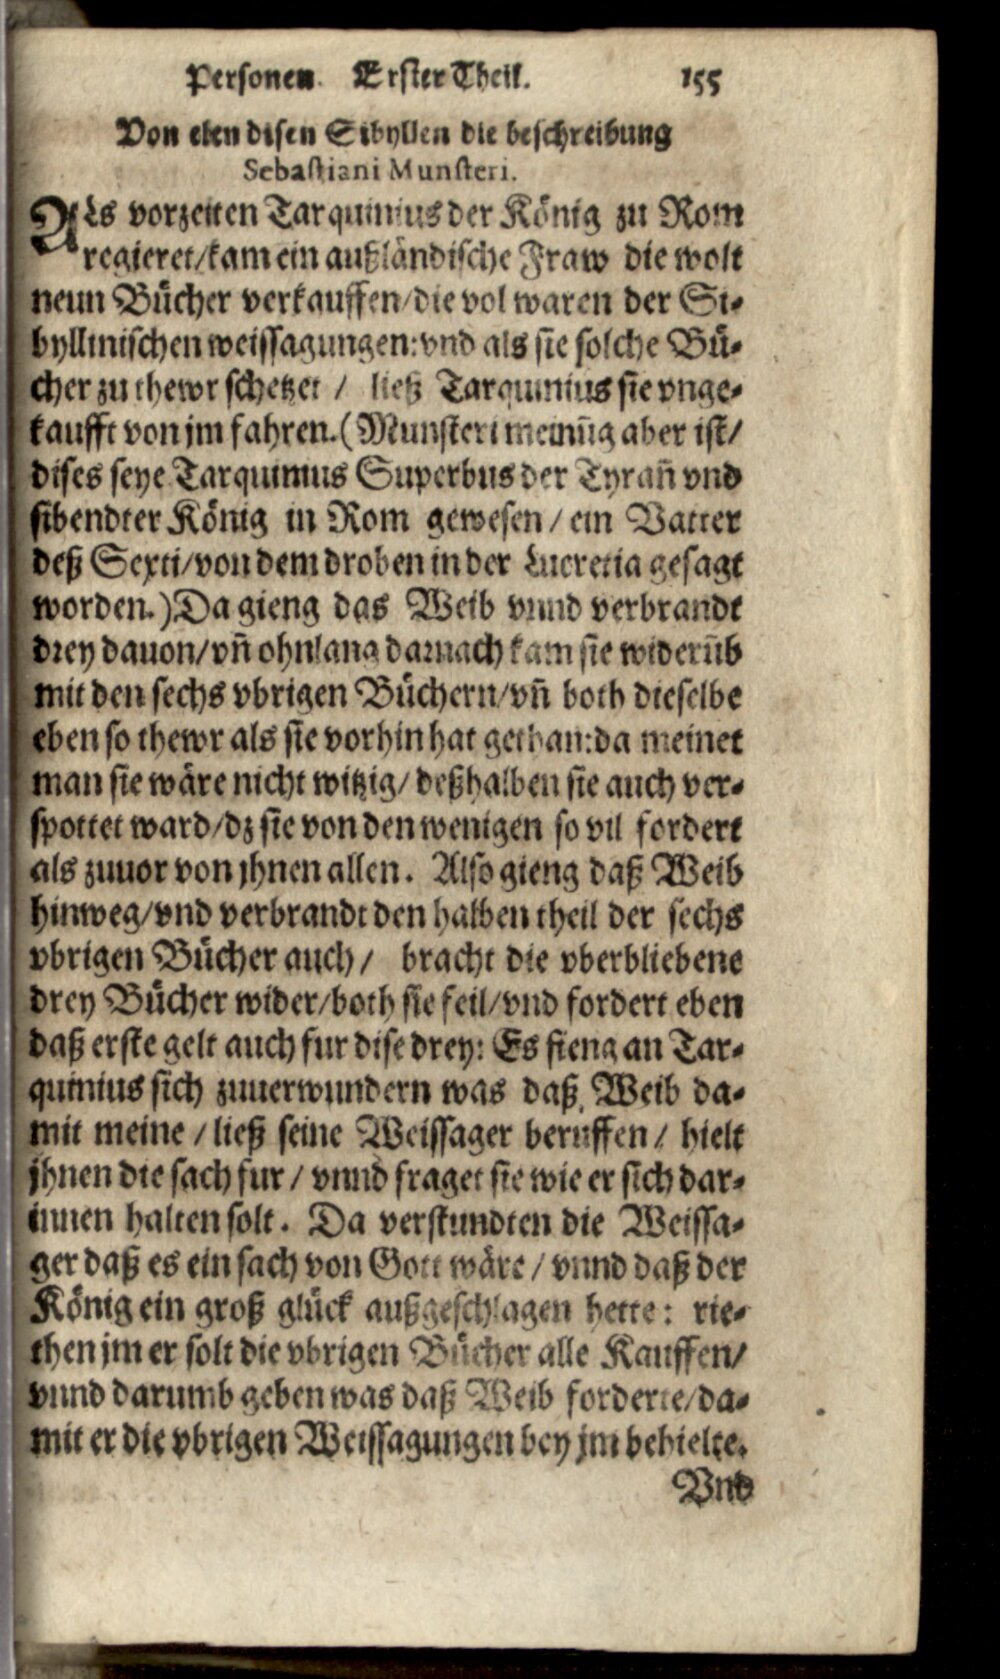 Personen. Erster Theil. 155
Von eben disen Sibyllen die beschreibung
Sebastiani Munsteri.
ALs vorzeiten Tarquinius der König zu Rom
regieret/kam ein außländische Fraw die wolt
neun Bücher verkauffen/die vol waren der Si-
byllinischen weissagungen: vnd als sie solche Bü-
cher zu thewr schetzet / ließ Tarquinius sie vnge-
kaufft von jm fahren. (Munsteri meinũg aber ist/
dises seye Tarquinius Superbus der Tyrañ vnd
sibendter König in Rom gewesen / ein Vatter
deß Sexti/von dem droben in der Lucretia gesagt
worden.) Da gieng das Weib vnnd verbrandt
drey dauon/vñ ohnlang darnach kam sie widerũb
mit den sechs vbrigen Büchern/vñ both dieselbe
eben so thewr als sie vorhin hat gethan: da meinet
man sie wäre nicht witzig/ deßhalben sie auch ver-
spottet ward/dz sie von den wenigen so vil fordert
als zuuor von jhnen allen. Also gieng daß Weib
hinweg/vnd verbrandt den halben theil der sechs
vbrigen Bücher auch/ bracht die vberbliebene
drey Bücher wider/both sie feil/vnd fordert eben
daß erste gelt auch fur dise drey: Es fieng an Tar-
quinius sich zuuerwundern was daß Weib da-
mit meine / ließ seine Weissager beruffen / hielt
jhnen die sach fur / vnnd fraget sie wie er sich dar-
innen halten solt. Da verstundten die Weissa-
ger daß es ein sach von Gott wäre / vnnd daß der
König ein groß glück außgeschlagen hette: rie-
then jm er solt die vbrigen Bücher alle Kauffen/
vnnd darumb geben was daß Weib forderte/da-
mit er die vbrigen Weissagungen bey jm behielte.
Vnd